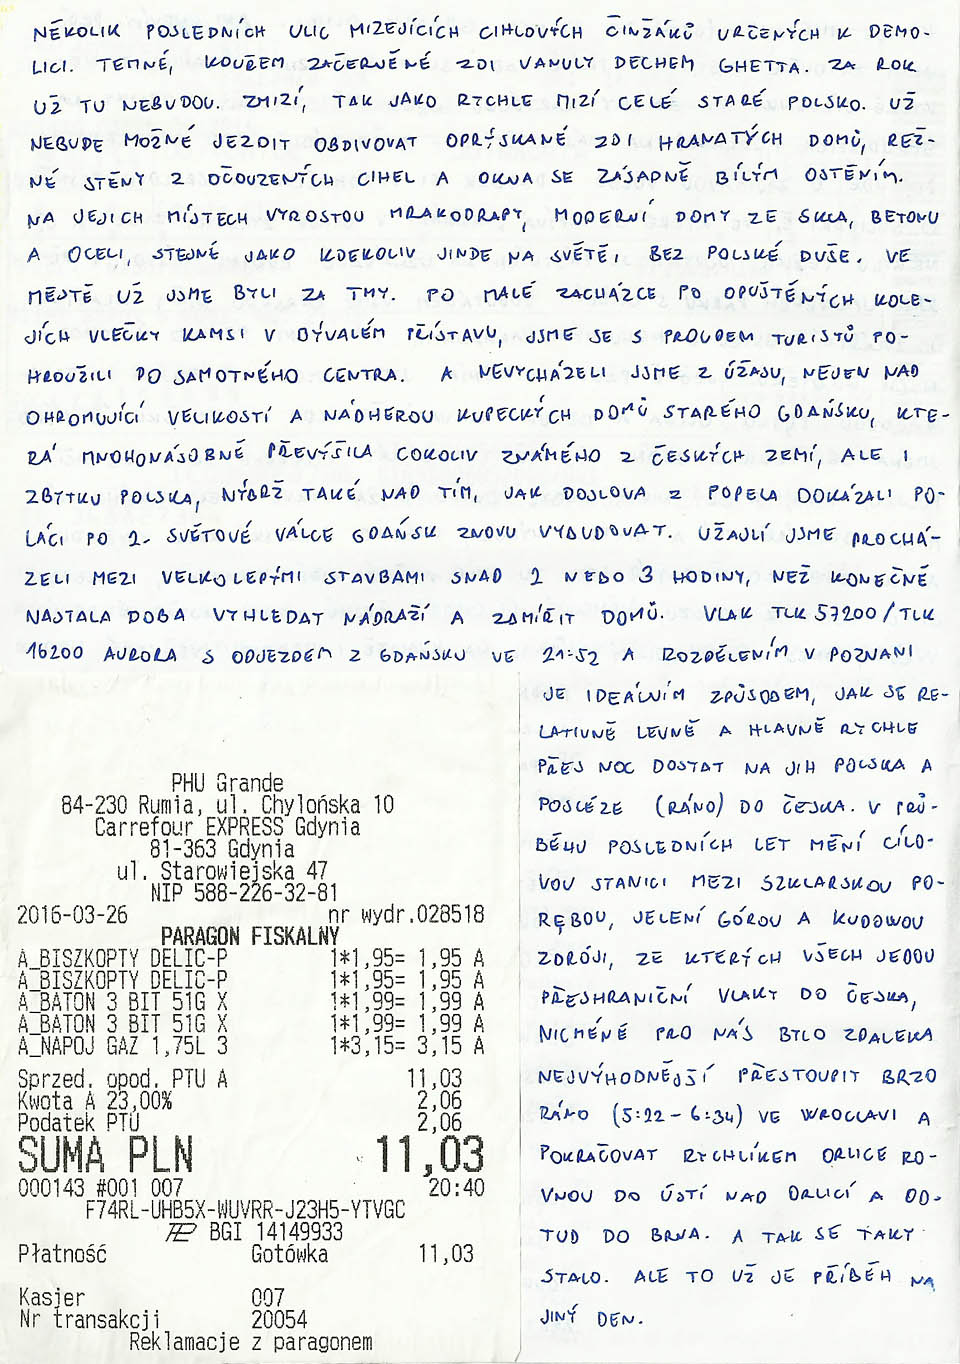 NĚKOLIK POSLEDNÍCH ULIC MIZEJÍCÍCH CIHLOVÝCH ČINŽÁKŮ URČENÝCH K DEMO-
LICI. TEMNÉ, KOUŘEM ZAČERNĚNÉ ZDI VANULY DECHEM GHETTA. ZA ROK
UŽ TU NEBUDOU. ZMIZÍ, TAK JAKO RYCHLE MIZÍ CELÉ STARÉ POLSKO. UŽ
NEBUDE MOŽNÉ JEZDIT OBDIVOVAT OPRÝSKANÉ ZDI HRANATÝCH DOMŮ, REŽ-
NÉ STĚNY Z OČOUZENÝCH CIHEL A OKNA SE ZÁSADNĚ BÍLÝM OSTĚNÍM.
NA JEJICH MÍSTECH VYROSTOU MRAKODRAPY, MODERNÍ DOMY ZE SKLA, BETONU
A OCELI, STEJNÉ JAKO KDEKOLIV JINDE NA SVĚTĚ, BEZ POLSKÉ DUŠE. VE
MĚSTĚ UŽ JSME BYLI ZA TMY. PO MALÉ ZACHÁZCE PO OPUŠTĚNÝCH KOLE-
JÍCH VLEČKY KAMSI V BÝVALÉM PŘÍSTAVU, JSME SE S PROUDEM TURISTŮ PO-
HROUŽILI DO SAMOTNÉHO CENTRA. A NEVYCHÁZELI JSME Z ÚŽASU, NEJEN NAD
OHROMUJÍCÍ VELIKOSTÍ A NÁDHEROU KUPECKÝCH DOMŮ STARÉHO GDAŃSKU, KTE-
RÁ MNOHONÁSOBNĚ PŘEVÝŠILA COKOLIV ZNÁMÉHO Z ČESKÝCH ZEMÍ, ALE I
ZBYTKU POLSKA, NÝBRŽ TAKÉ NAD TÍM, JAK DOSLOVA Z POPELA DOKÁZALI PO-
LÁCI PO 2. SVĚTOVÉ VÁLCE GDAŃSK ZNOVU VYBUDOVAT. UŽASLÍ JSME PROCHÁ-
ZELI MEZI VELKOLEPÝMI STAVBAMI SNAD 2 NEBO 3 HODINY, NEŽ KONEČNĚ
NASTALA DOBA VYHLEDAT NÁDRAŽÍ A ZAMÍŘIT DOMŮ. VLAK TLK 57200/TLK
16200 AURORA S ODJEZDEM Z GDAŃSKU VE 21:52 A ROZDĚLENÍM V POZNANI
JE IDEÁLNÍM ZPŮSOBEM, JAK SE RE-
LATIVNĚ LEVNĚ A HLAVNĚ RYCHLE
PŘES NOC DOSTAT NA JIH POLSKA A
POSLÉZE (RÁNO) DO ČESKA. V PRŮ-
BĚHU POSLEDNÍCH LET MĚNÍ CÍLO-
VOU STANICI MEZI SZKLARSKOU PO-
RĘBOU, JELENÍ GÓROU A KUDOWOU
ZDRÓJI, ZE KTERÝCH VŠECH JEDOU
PŘESHRANIČNÍ VLAKY DO ČESKA,
NICMÉNĚ PRO NÁS BYLO ZDALEKA
NEJVÝHODNĚJŠÍ PŘESTOUPIT BRZO
RÁNO (5:22 - 6:34) VE WROCLAVI A
POKRAČOVAT RYCHLÍKEM ORLICE RO-
VNOU DO ÚSTÍ NAD ORLICÍ A OD-
TUD DO BRNA. A TAK SE TAKY
STALO. ALE TO UŽ JE PŘÍBĚH NA
JINÝ DEN.
PHU Grande
84-230 Rumia, ul. Chylońska 10
Carrefour EXPRESS Gdynia
81-363 Gdynia
ul. Starowiejska 47
NIP 588-226-32-81
2016-03-26 nr wydr.028518
PARAGON FISKALNY
A_BISZKOPTY DELIC-P 1*1,95= 1,95 A
A_BISZKOPTY DELIC-P 1*1,95= 1,95 A
A_BATON 3 BIT 51G X 1*1,99= 1,99 A
A_BATON 3 BIT 51G X 1*1,99= 1,99 A
A_NAPOJ GAZ 1,75L 3 1*3,15= 3,15 A
Sprzed. opod. PTU A 11,03
Kwota A 23,00% 2,06
Podatek PTU 2,06
SUMA PLN 11,03
000143 #001 007 20:40
F74RL-UHB5X-WUVRR-J23H5-YTVGC
BGI 14149933
Płatność Gotówka 11,03
Kasjer 007
Nr transakcji 20054
Reklamacje z paragonem